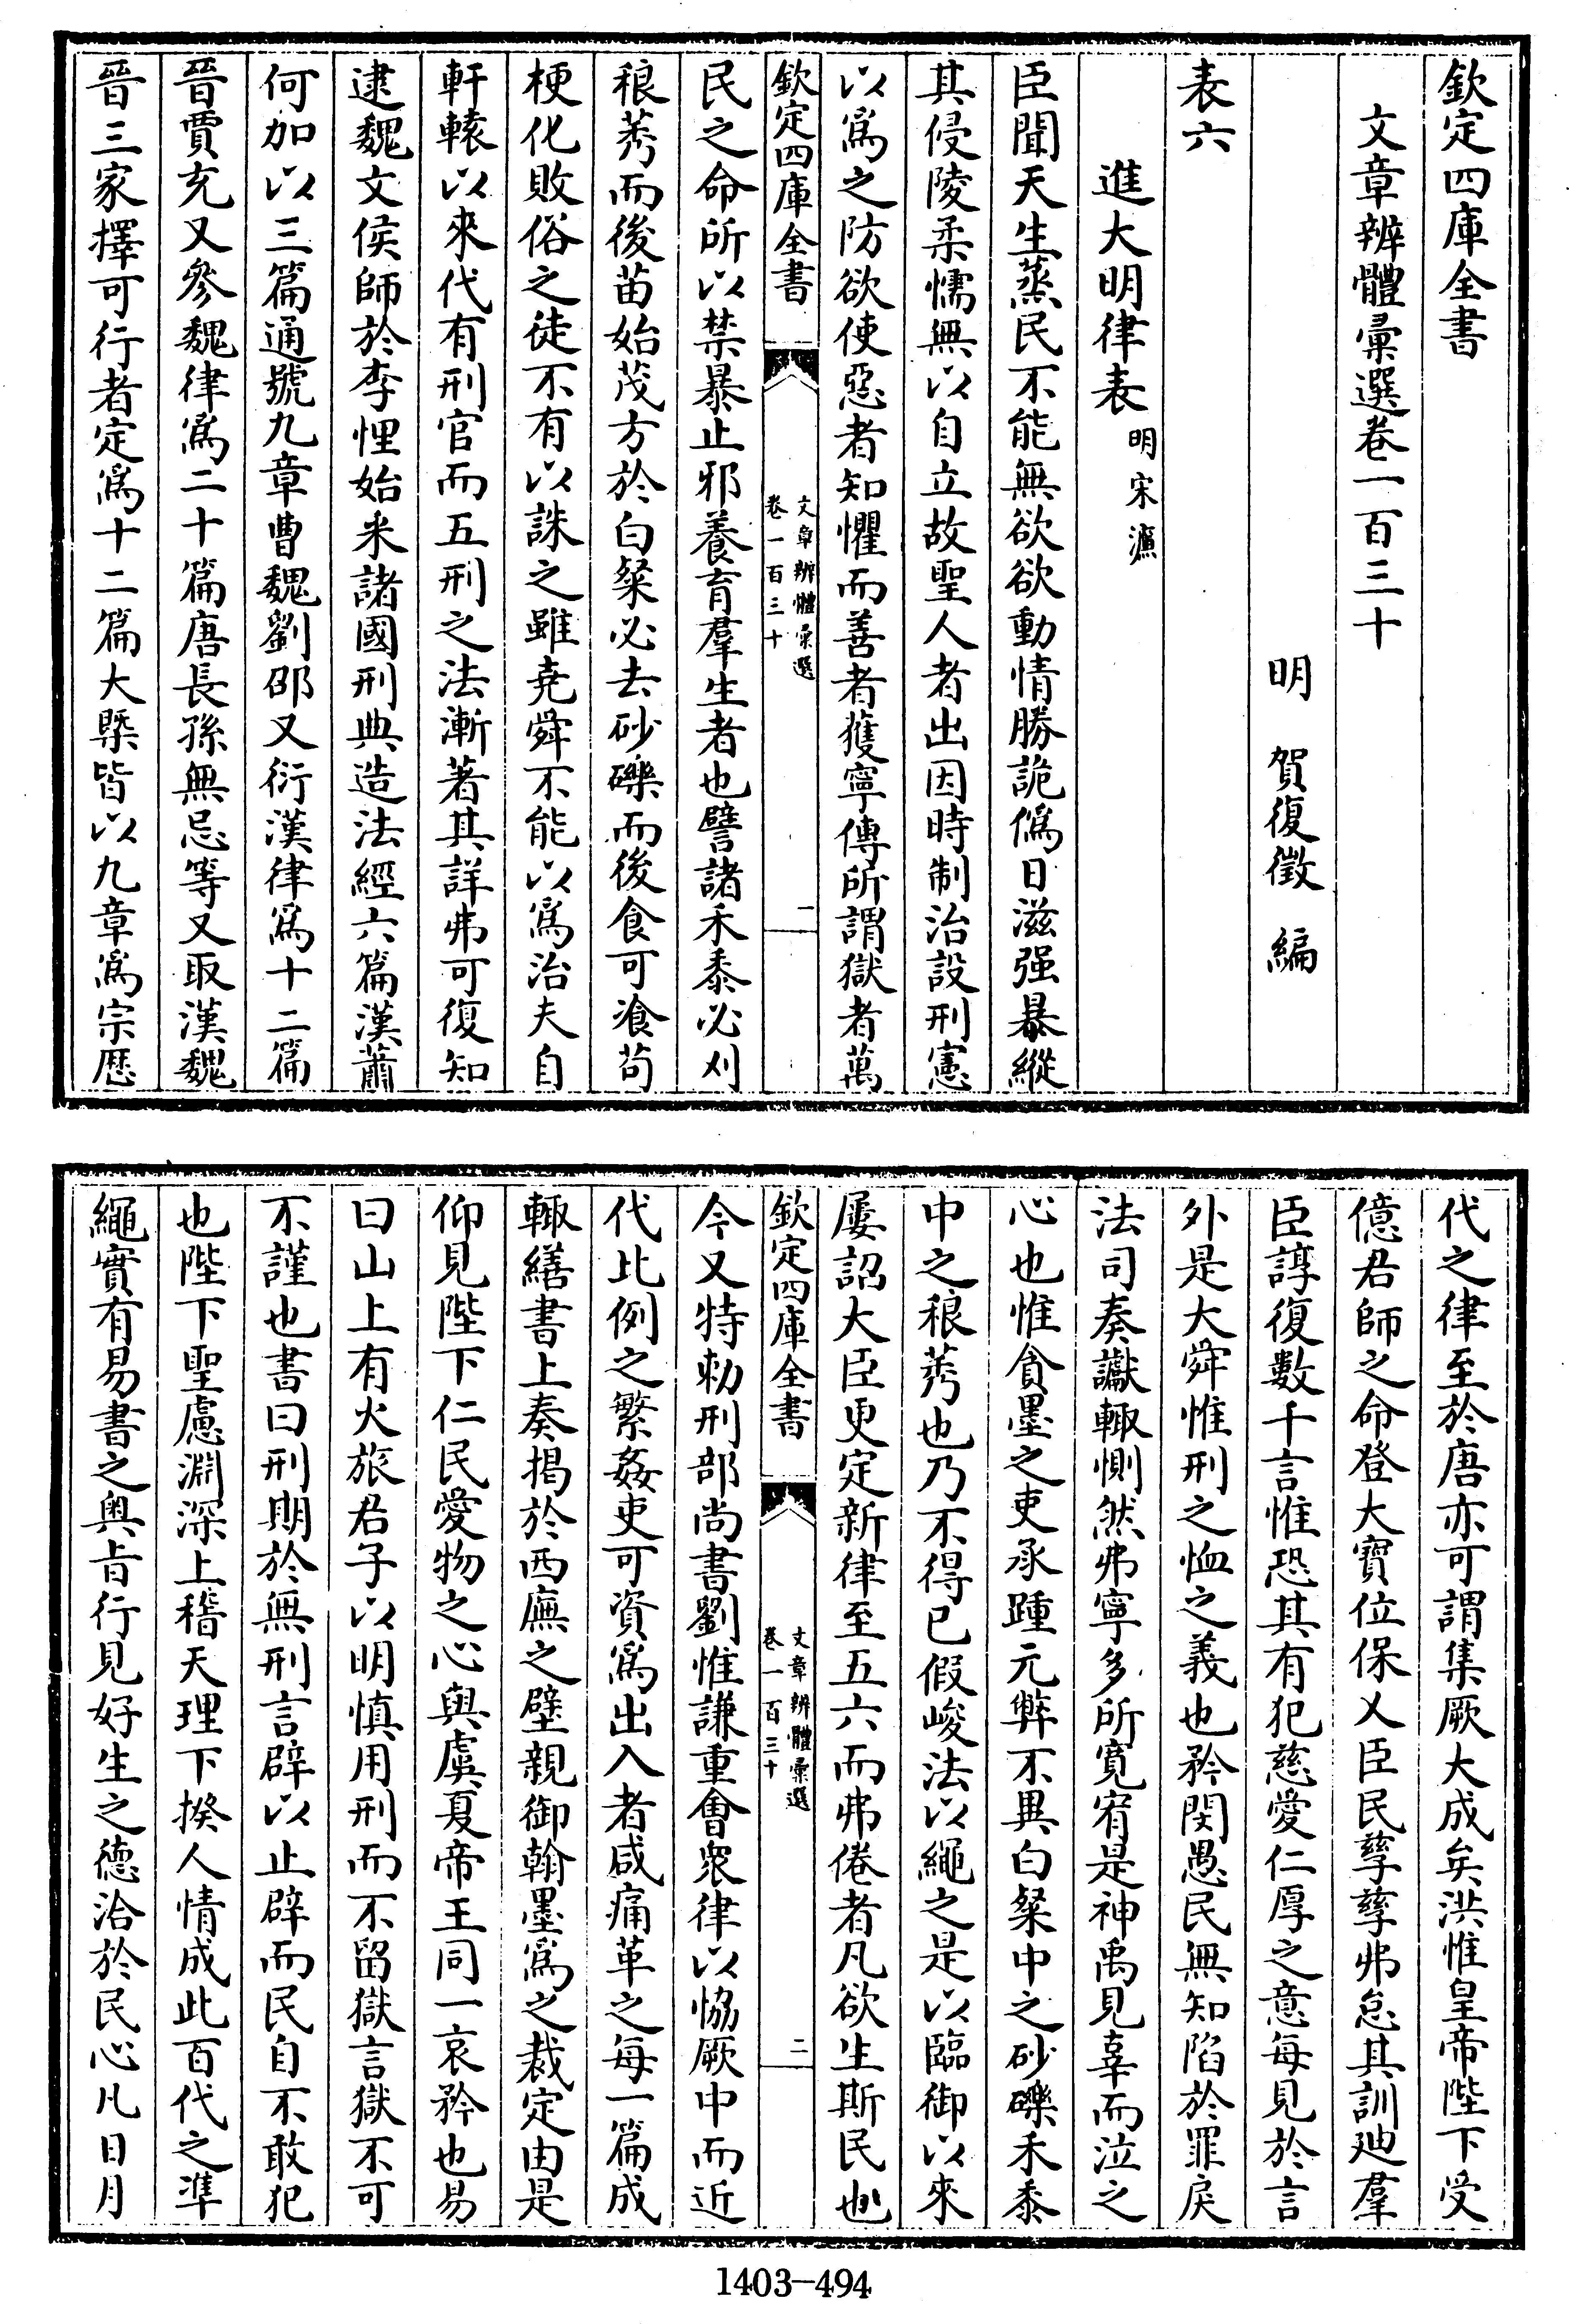 欽定四庫全書
文章辨體彙選卷一百三十
明　賀復徵　編
表六
進大明律表明宋濂
臣聞天生蒸民不能無欲欲動情勝詭僞日滋强暴縱
其侵陵柔懦無以自立故聖人者出因時制治設刑憲
以爲之防欲使惡者知懼而善者獲寧傳所謂獄者萬
欽定四庫全書
文章辨體彙選
卷一百三十
一
民之命所以禁暴止邪養育羣生者也譬諸禾黍必刈
稂莠而後苗始茂方於白粲必去砂礫而後食可飡苟
梗化敗俗之徒不有以誅之雖堯舜不能以爲治夫自
軒轅以來代有刑官而五刑之法漸著其詳弗可復知
逮魏文侯師於李悝始釆諸國刑典造法經六篇漢蕭
何加以三篇通號九章曹魏劉邵又衍漢律爲十二篇
晉賈充又參魏律爲二十篇唐長孫無忌等又取漢魏
晉三家擇可行者定爲十二篇大槩皆以九章爲宗歷
代之律至於唐亦可謂集厥大成矣洪惟皇帝陛下受
億君師之命登大寶位保乂臣民孳孳弗怠其訓廸羣
臣諄復數千言惟恐其有犯慈愛仁厚之意每見於言
外是大舜惟刑之恤之義也矜閔愚民無知陷於罪戾
法司奏讞輙惻然弗寧多所寛宥是神禹見辜而泣之
心也惟貪墨之吏承踵元弊不異白粲中之砂礫禾黍
中之稂莠也乃不得已假峻法以繩之是以臨御以來
屢詔大臣更定新律至五六而弗倦者凡欲生斯民也
欽定四庫全書
文章辨體彙選
卷一百三十
二
今又特勅刑部尚書劉惟謙重會衆律以恊厥中而近
代比例之繁姦吏可資爲出入者咸痛革之每一篇成
輙繕書上奏揭於西廡之壁親御翰墨爲之裁定由是
仰見陛下仁民愛物之心與虞夏帝王同一哀矜也易
曰山上有火旅君子以明慎用刑而不留獄言獄不可
不謹也書曰刑期於無刑言辟以止辟而民自不敢犯
也陛下聖慮淵深上稽天理下揆人情成此百代之準
繩實有易書之奥㫖行見好生之德洽於民心凡日月
1403-494